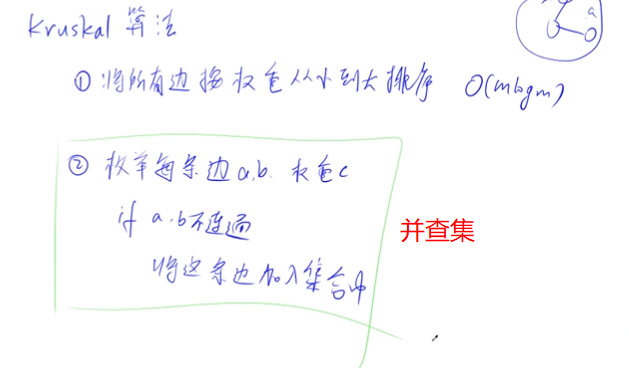 Kruskal 算法
① 将所有边按权重从小到大排序 O(mlogm)
a
② 枚举每条边a,b 权重c
if a,b不连通
并查集
将这条边加入集合中